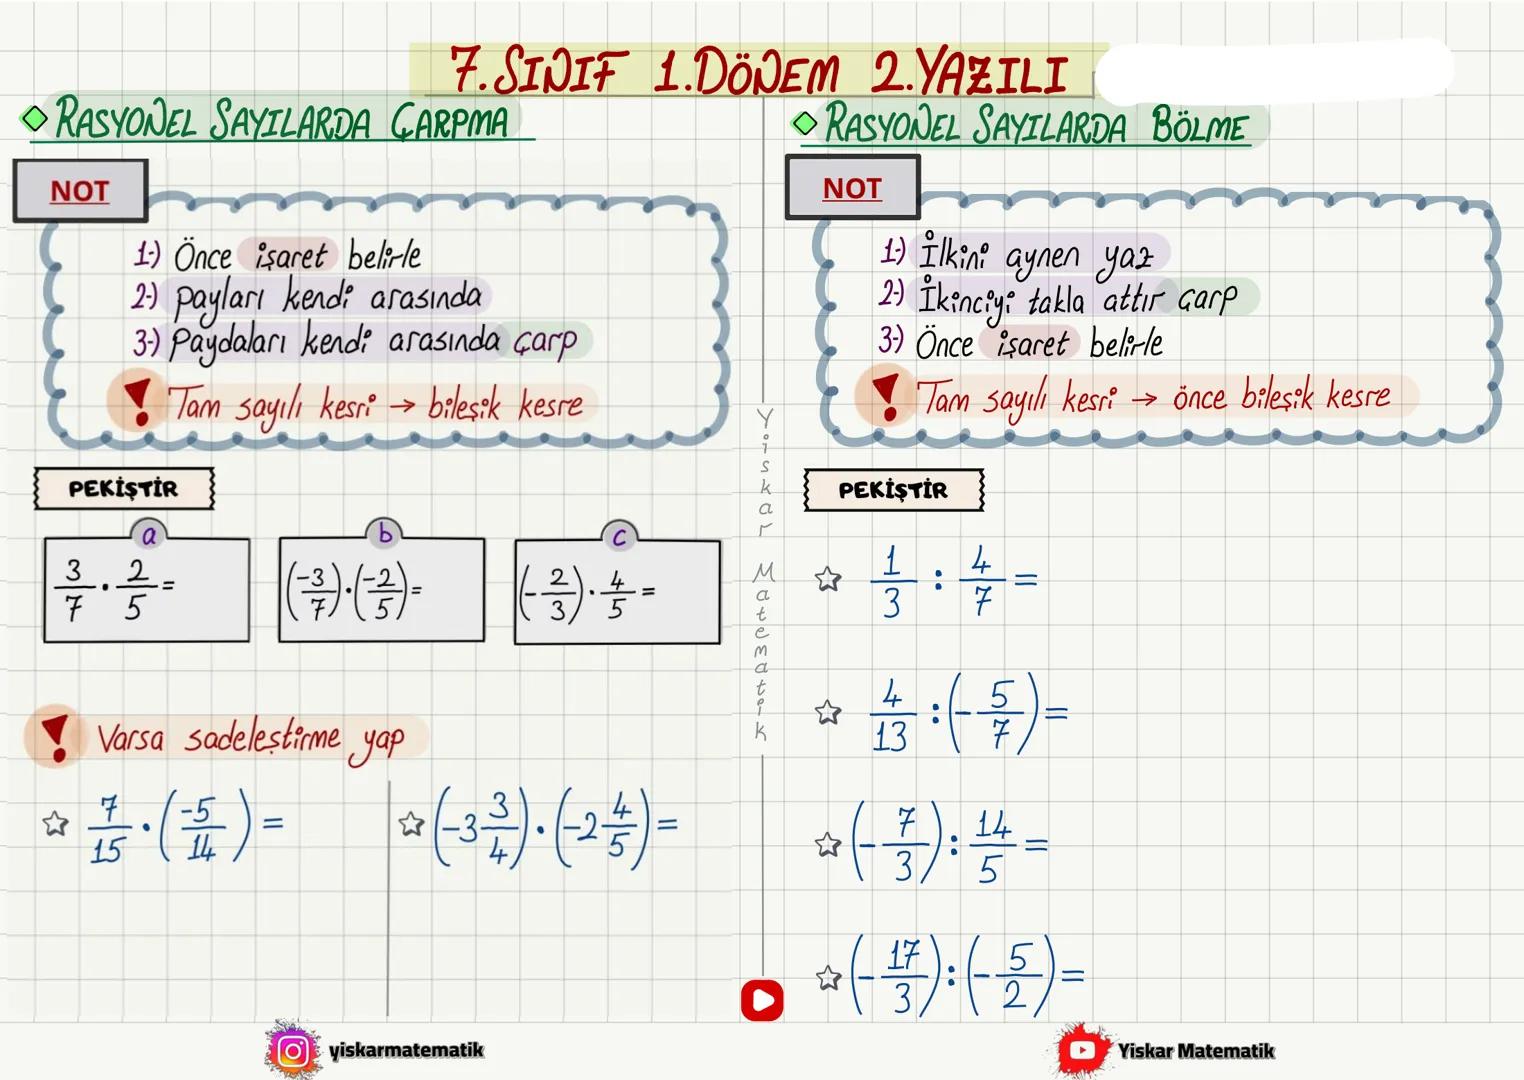 7.SINIF 1.DÖNEM 2.YAZILI
RASYONEL SAYILARDA ÇARPMA
NOT
1-) Önce işaret belirle
2-) Payları kendi arasında
3-) Paydaları kendi arasında çarp
! Tam sayılı kesri → bileşik kesre
PEKİŞTİR
a
3/7 · 2/5 =
b
(-3/7)·(-2/5)=
c
(-2/3)·4/5 =
! Varsa sadeleştirme yap
☆ 7/15 · (-5/14) =
☆ (-3 3/4)·(-2 4/5)=
Yiskar Matematik
RASYONEL SAYILARDA BÖLME
NOT
1-) İlkini aynen yaz
2-) İkinciyi takla attır çarp
3-) Önce işaret belirle
! Tam sayılı kesri → önce bileşik kesre
PEKİŞTİR
☆ 1/3 : 4/7 =
☆ 4/13 : (-5/7) =
☆ (-7/3) : 14/5 =
☆ (-17/3) : (-5/2) =
yiskarmatematik
Yiskar Matematik